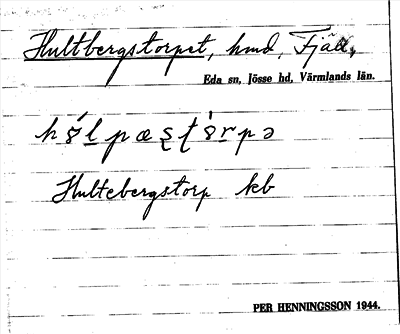 Hultbergstorpet, hmd, Fjäll,
Eda sn, Jösse hd, Värmlands län.
Hultebergstorp kb
PER HENNINGSSON 1944.